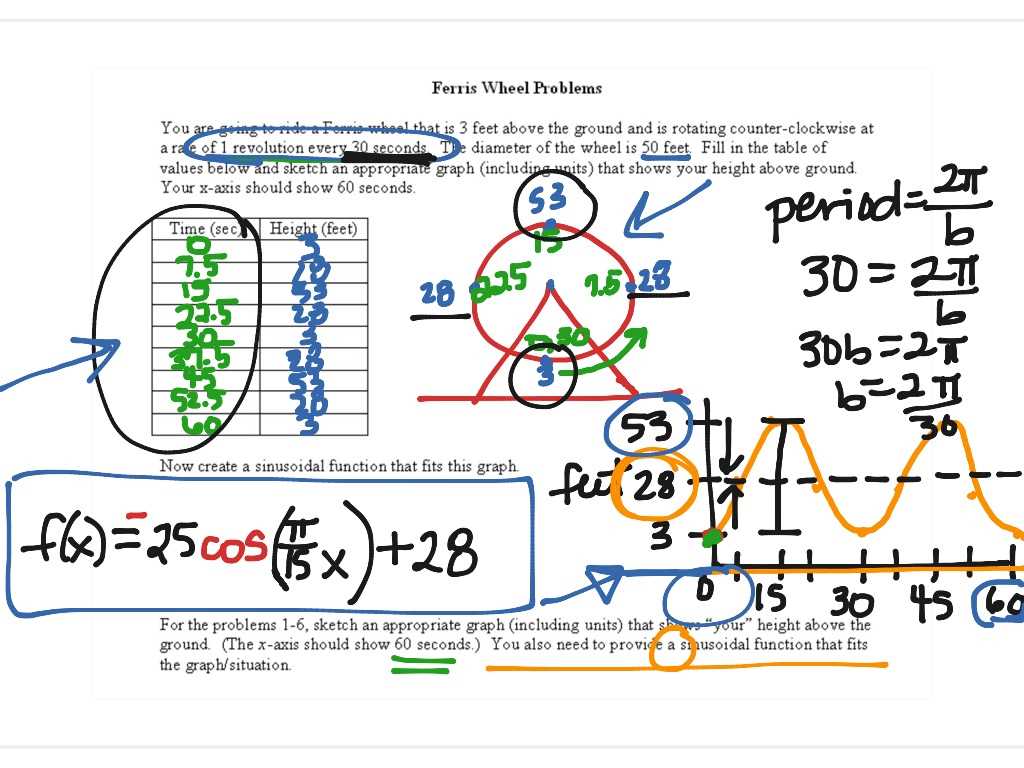 Ferris Wheel Problems
You are going to ride a Ferris wheel that is 3 feet above the ground and is rotating counter-clockwise at
a rate of 1 revolution every 30 seconds. The diameter of the wheel is 50 feet. Fill in the table of
values below and sketch an appropriate graph (including units) that shows your height above ground.
Your x-axis should show 60 seconds.
Time (sec) Height (feet)
0 3
7.5 28
15 53
22.5 28
30 3
37.5 28
45 53
52.5 28
60 3
53
15
28 22.5 7.5 28
30
3
period = 2π/b
30 = 2π/b
30b = 2π
b = 2π/30
53
feet 28
3
0 15 30 45 60
Now create a sinusoidal function that fits this graph.
f(x) = -25 cos(π/15 x) + 28
For the problems 1-6, sketch an appropriate graph (including units) that shows “your” height above the
ground. (The x-axis should show 60 seconds.) You also need to provide a sinusoidal function that fits
the graph/situation.